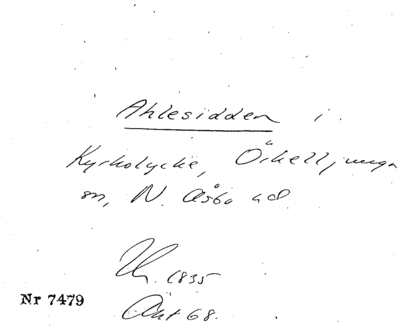 Ahlesidden i
Kyrkolycke, Örkelljunga
sn, N. Åsbo hd.
Th. 1835
Akt 68.
Nr 7479